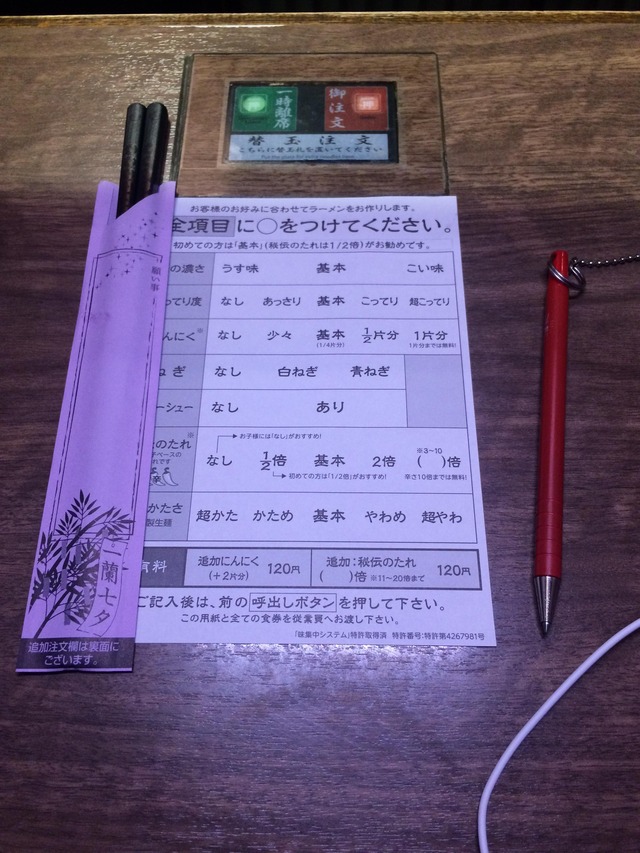 一時離席
押
御注文
押
替玉注文
こちらに替玉札を置いてください
お客様のお好みに合わせてラーメンをお作りします。
全項目に○をつけてください。
初めての方は「基本」(秘伝のたれは1/2倍)がお勧めです。
の濃さ うす味 基本 こい味
ってり度 なし あっさり 基本 こってり 超こってり
んにく※ なし 少々 基本 1/2片分 1片分
(1/4片分) 1片分までは無料!
ねぎ なし 白ねぎ 青ねぎ
ーシュー なし あり
お子様には「なし」がおすすめ!
のたれ※ なし 1/2倍 基本 2倍 ※3~10 ( )倍
初めての方は「1/2倍」がおすすめ! 辛さ10倍までは無料!
かたさ 超かた かため 基本 やわめ 超やわ
製生麺
有料 追加にんにく (+2片分) 120円 追加:秘伝のたれ ( )倍 ※11~20倍まで 120円
ご記入後は、前の呼出しボタンを押して下さい。
この用紙と全ての食券を従業員へお渡し下さい。
「味集中システム」特許取得済 特許番号:特許第4267981号
願い事
一蘭七夕
追加注文欄は裏面に
ございます。